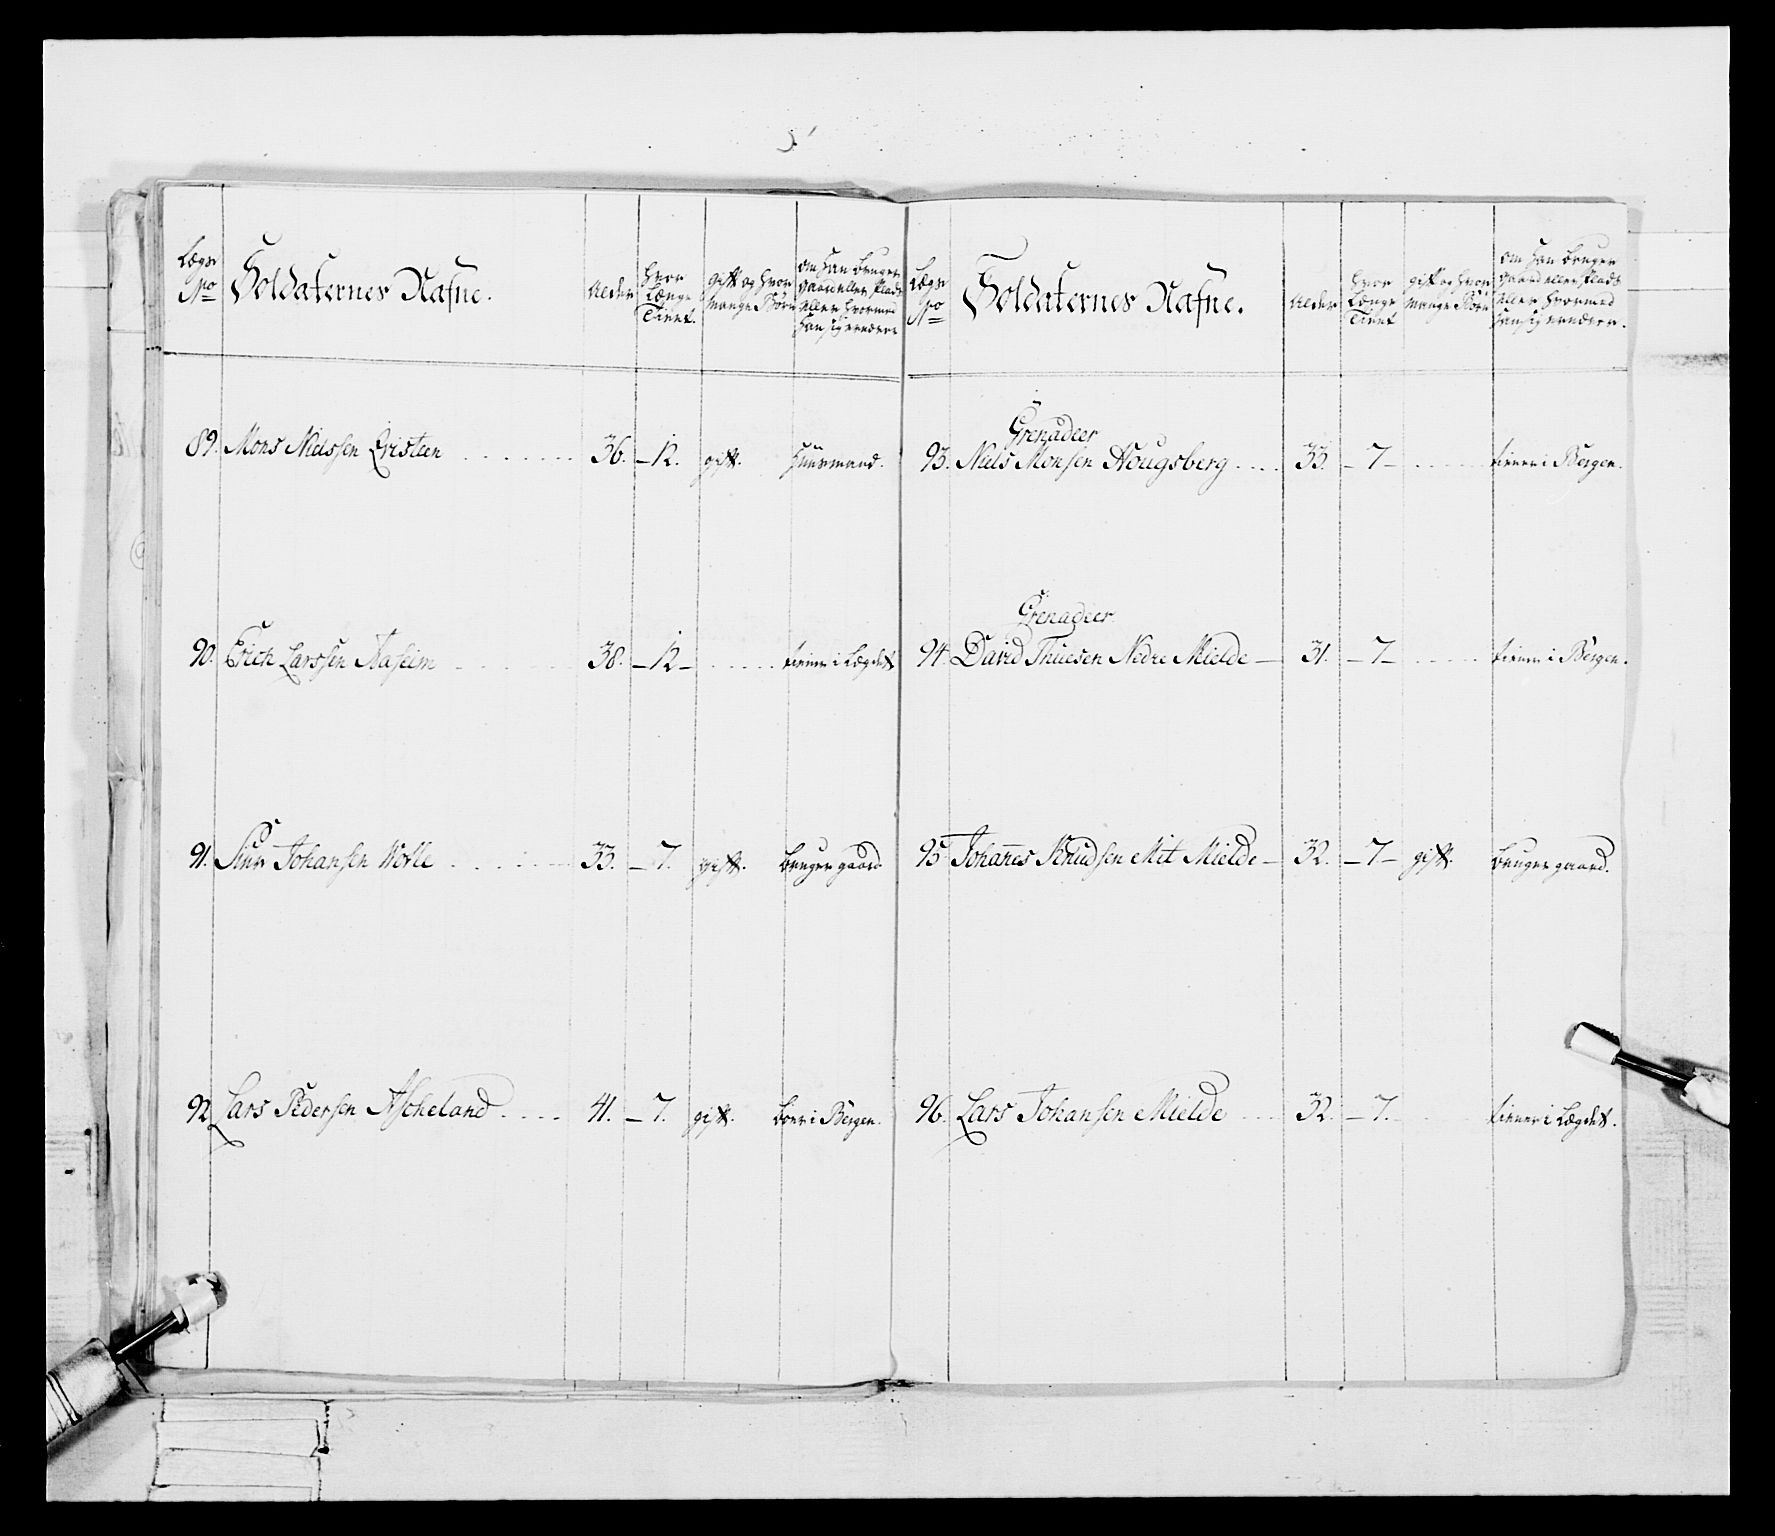 Lægs No
Soldaternes Nafne.
Alder
hvor Længe Tient.
gift og hvor mange Børn
om han bruger gaard eller Plads eller hvormed han sig ernærer
89. Mons Nielssen Qvisteen 36. 12. gift. huusmand.
90. Erich Larssen Aaseim 38. 12 tiener i Lægdet
91. Siur Johansen Wolle 33. 7. gift. bruger gaard
92 Lars Pedersen Ascheland 41. 7. gift. boer i Bergen.
Lægs No
Soldaternes Nafne.
Alder
hvor Længe Tient
gift og hvor mange Børn
om han bruger gaard eller Plads eller hvormed han sig ernærer.
Grenadeer
93. Niels Monsen Hougsberg 33. 7 tiener i Bergen.
Grenadeer
94. David Thuesen Nedre Mielde 31. 7 tiener i Bergen.
95 Johannes Knudsen Mit Mielde 32. 7 gift. bruger gaard.
96. Lars Johansen Mielde 32. 7. tiener i Lægdet.